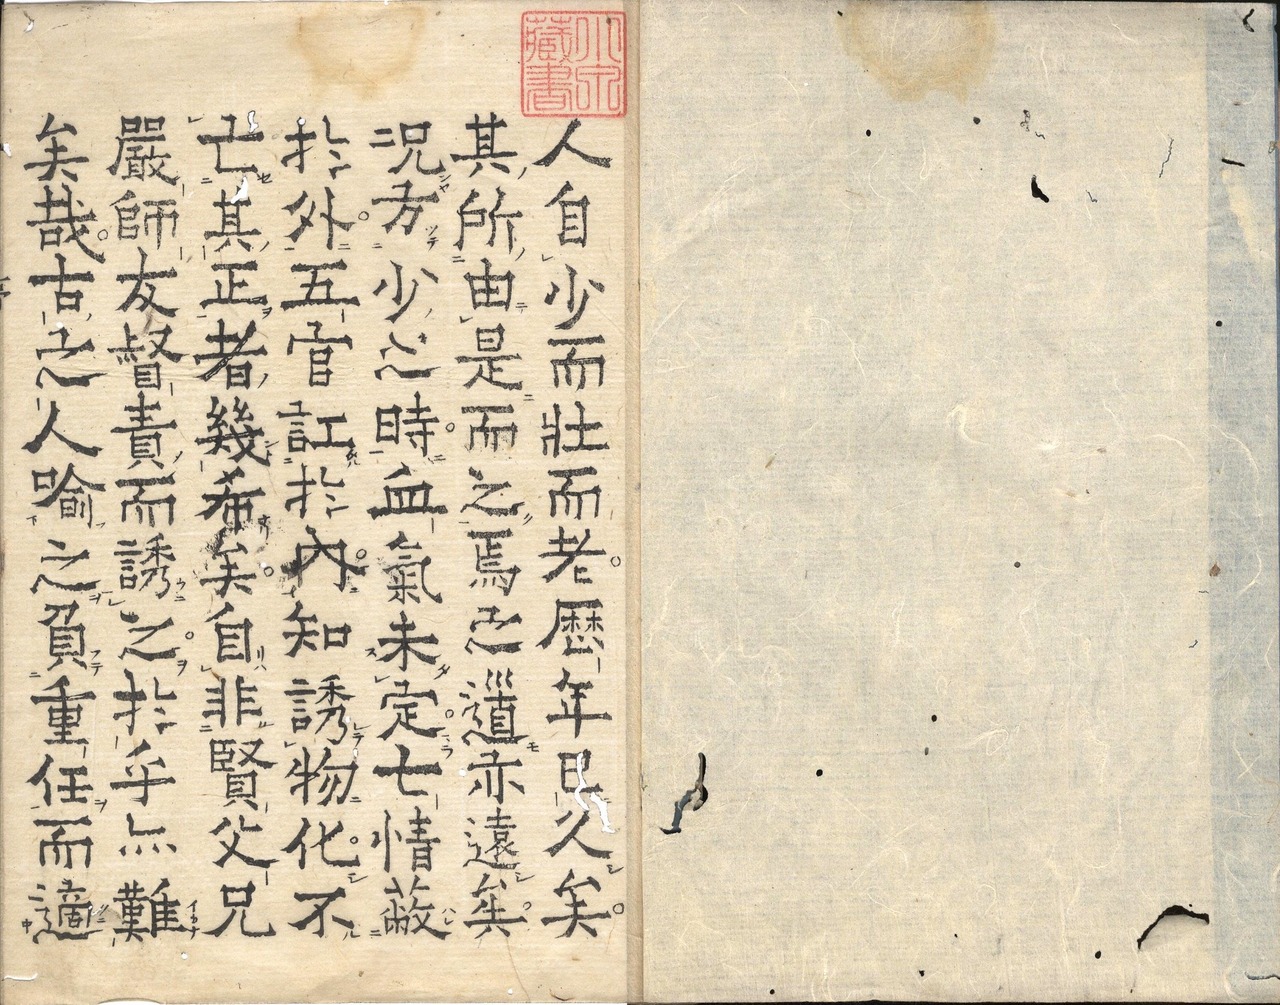 小泉藏書
人自少而壯而老。歷年已久矣。
其所由是而之焉之道亦遠矣。
况方少之時。血氣未定。七情蔽
於外。五官訌於內。知誘物化。不
亡其正者幾希矣。自非賢父兄
嚴師友督責而誘之。於乎亦難
矣哉。古之人喻之負重任而適